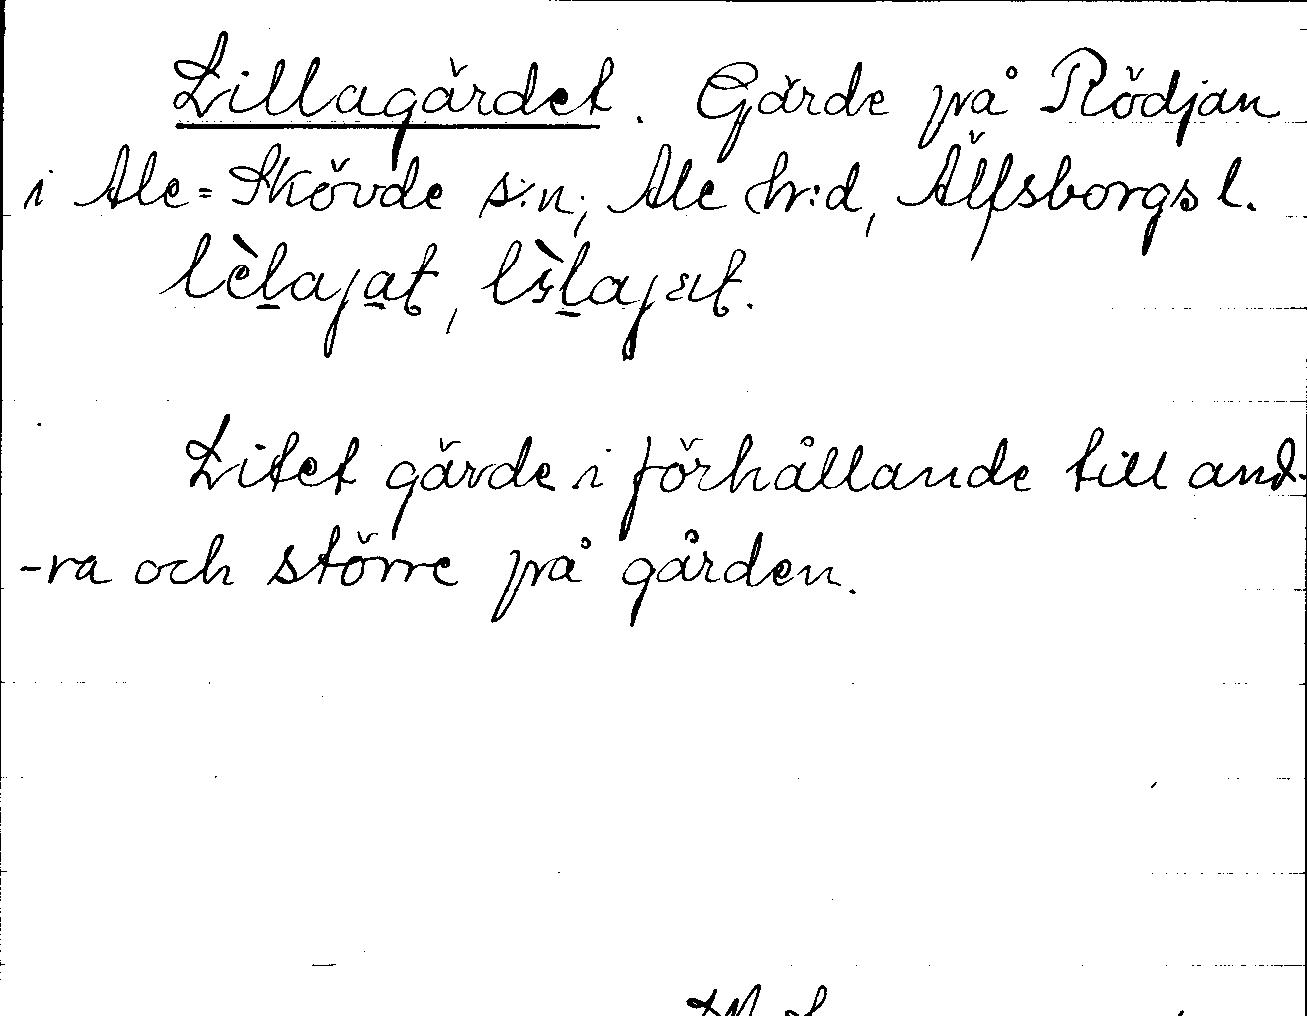 Lillagärdet. Gärde på Rödjan
i Ale=Skövde s:n, Ale hr:d, Älfsborgs l.
Litet gärde i förhållande till and-
-ra och större på gården.